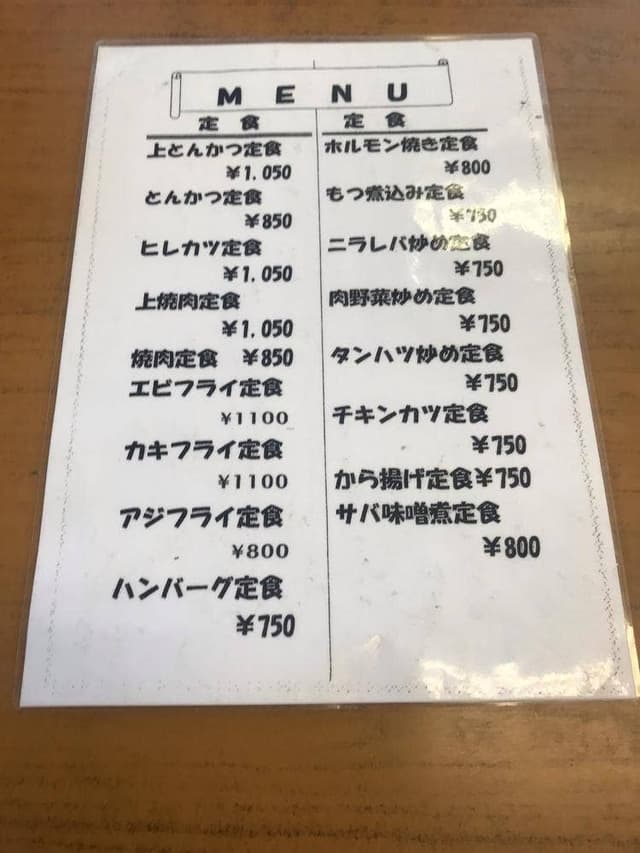 MENU
定食
上とんかつ定食
¥1,050
とんかつ定食
¥850
ヒレカツ定食
¥1,050
上焼肉定食
¥1,050
焼肉定食 ¥850
エビフライ定食
¥1100
カキフライ定食
¥1100
アジフライ定食
¥800
ハンバーグ定食
¥750
定食
ホルモン焼き定食
¥800
もつ煮込み定食
¥750
ニラレバ炒め定食
¥750
肉野菜炒め定食
¥750
タンハツ炒め定食
¥750
チキンカツ定食
¥750
から揚げ定食¥750
サバ味噌煮定食
¥800